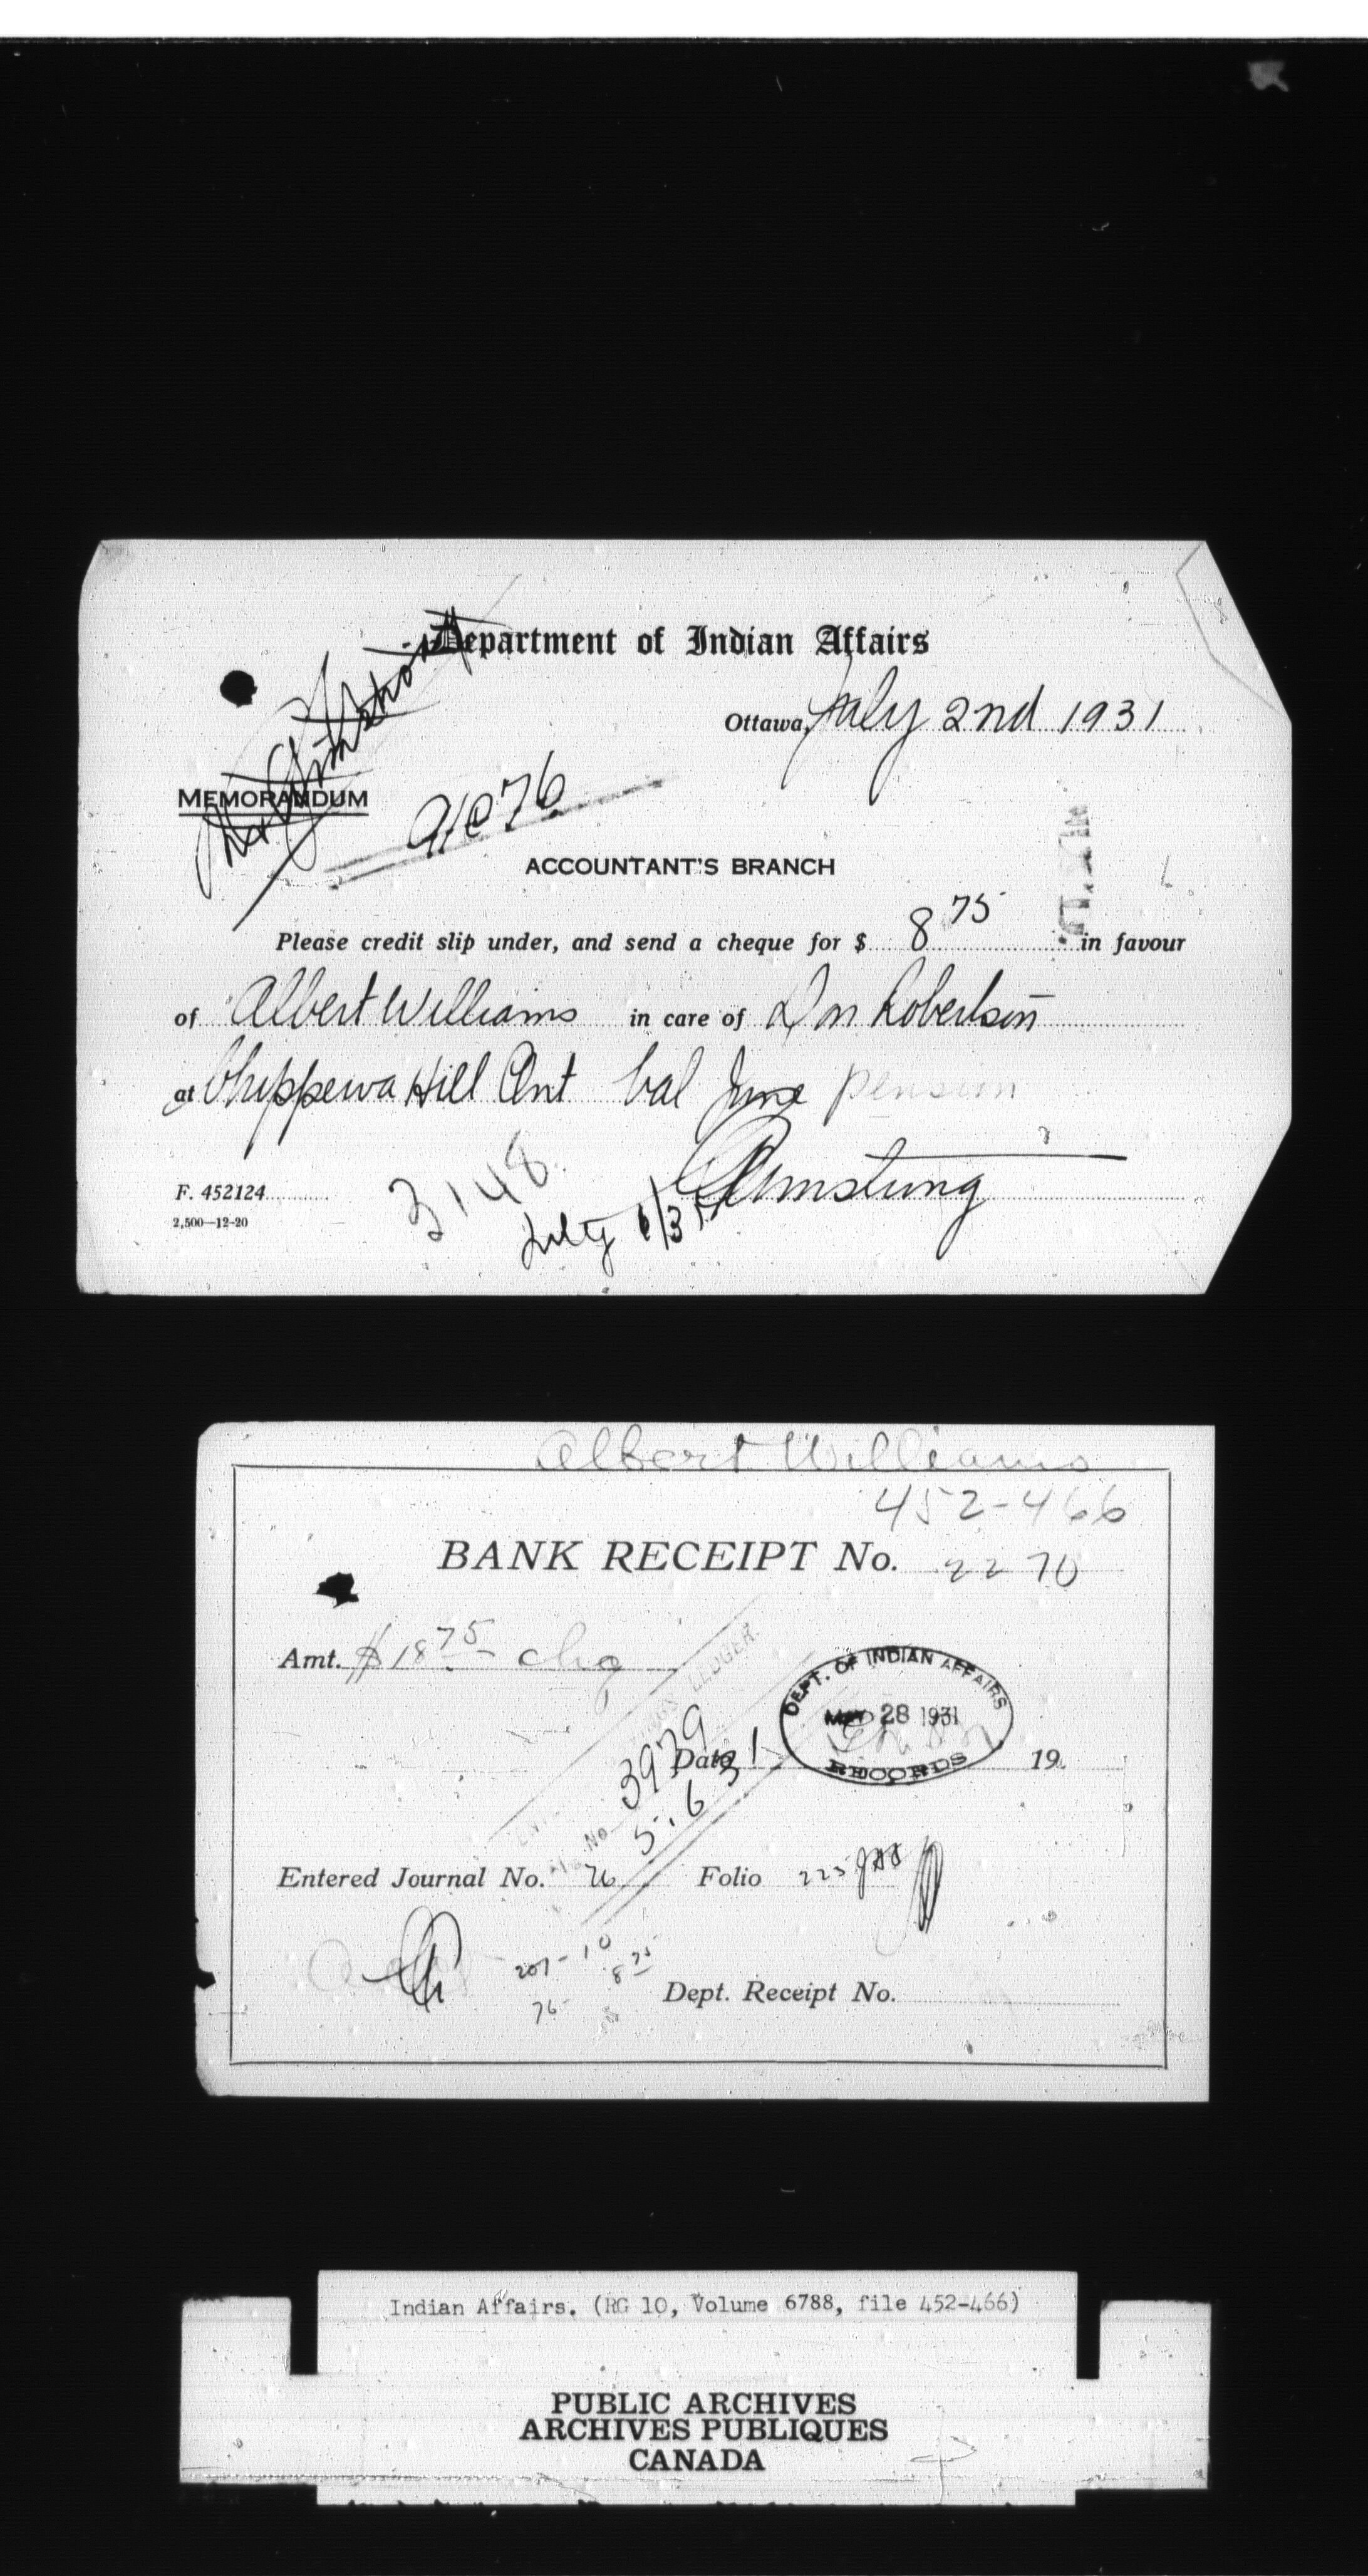 Department of Indian Affairs
Ottawa, July 2nd 1931
MEMORANDUM
91076
ACCOUNTANT'S BRANCH
Please credit slip under, and send a cheque for $ 8 75 in favour
of Albert Williams in care of Don Robertson
at Chippewa Hill Ont bal June pension
F. 452124
3148
2,500—12-20
July 6/31
Albert Williams
452-466
BANK RECEIPT No. 2270
Amt. $ 18 75 chq
LEDGER.
DEPT. OF INDIAN AFFAIRS
MAY 28 1931
RECORDS
3979
Date 19
No
5.6 31
Entered Journal No. 76 Folio 225
201-10
8 75
76
Dept. Receipt No.
Indian Affairs. (RG 10, Volume 6788, file 452-466)
PUBLIC ARCHIVES
ARCHIVES PUBLIQUES
CANADA